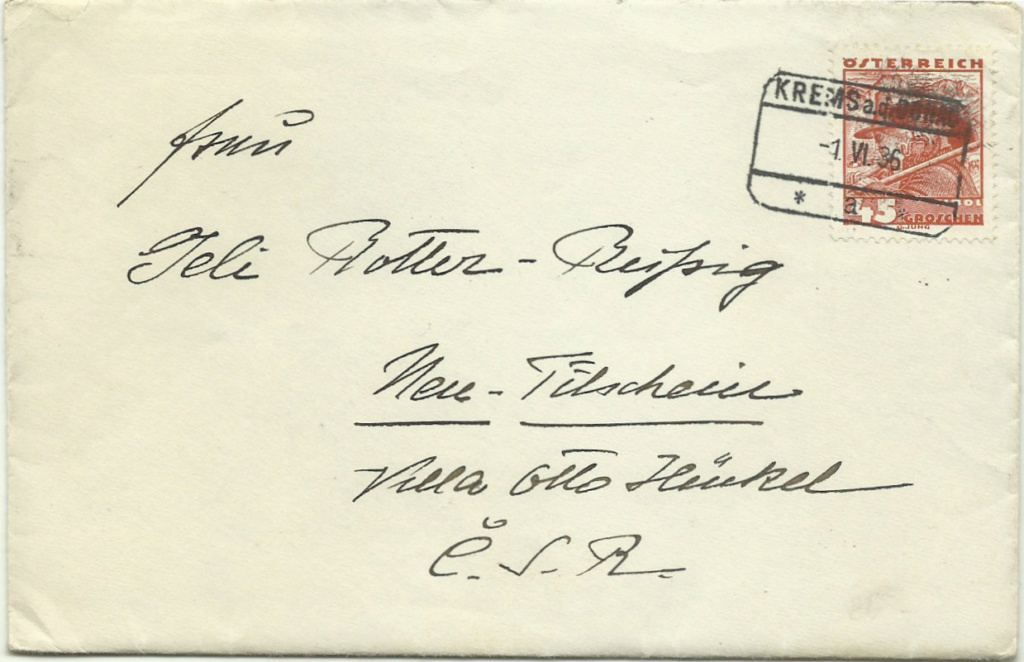 ÖSTERREICH
KREMS a.d. DONAU
-1. VI. 36
* a *
45
GROSCHEN
G.JUNG
Frau
Geli Rotter-Reißig
Neu-Titschein
Villa Otto Hückel
Č.S.R.